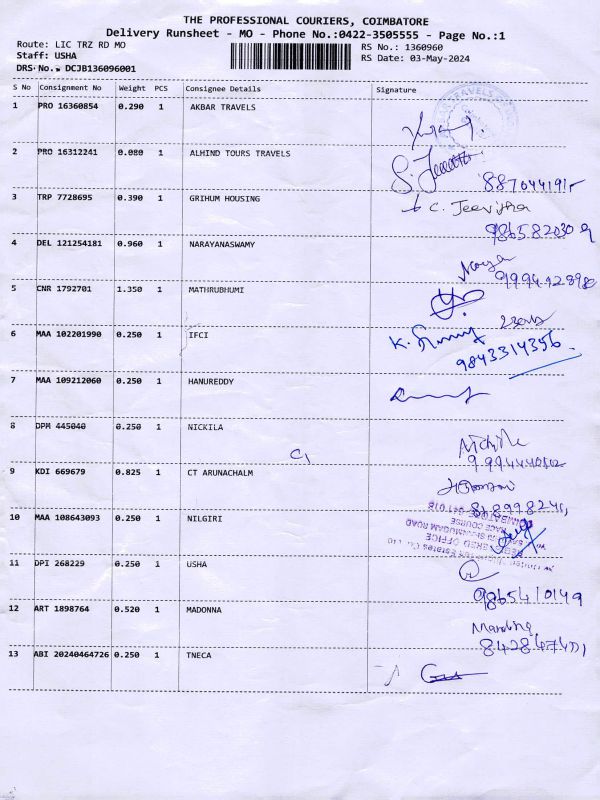 THE PROFESSIONAL COURIERS, COIMBATORE
Delivery Runsheet - MO - Phone No.:0422-3505555 - Page No.:1
Route: LIC TRZ RD MO
RS No.: 1360960
Staff: USHA
RS Date: 03-May-2024
DRS No.: DCJB136096001
S No Consignment No Weight PCS Consignee Details Signature
1 PRO 16360854 0.290 1 AKBAR TRAVELS
2 PRO 16312241 0.080 1 ALHIND TOURS TRAVELS
3 TRP 7728695 0.390 1 GRIHUM HOUSING C. Jeevitha
4 DEL 121254181 0.960 1 NARAYANASWAMY
5 CNR 1792701 1.350 1 MATHRUBHUMI
6 MAA 102201990 0.250 1 IFCI
9843314356
7 MAA 109212060 0.250 1 HANUREDDY
8 DPM 445040 0.250 1 NICKILA
Nickile
9 KDI 669679 0.825 1 CT ARUNACHALM
10 MAA 108643093 0.250 1 NILGIRI
11 DPI 268229 0.250 1 USHA
9865410149
12 ART 1898764 0.520 1 MADONNA
13 ABI 20240464726 0.250 1 TNECA